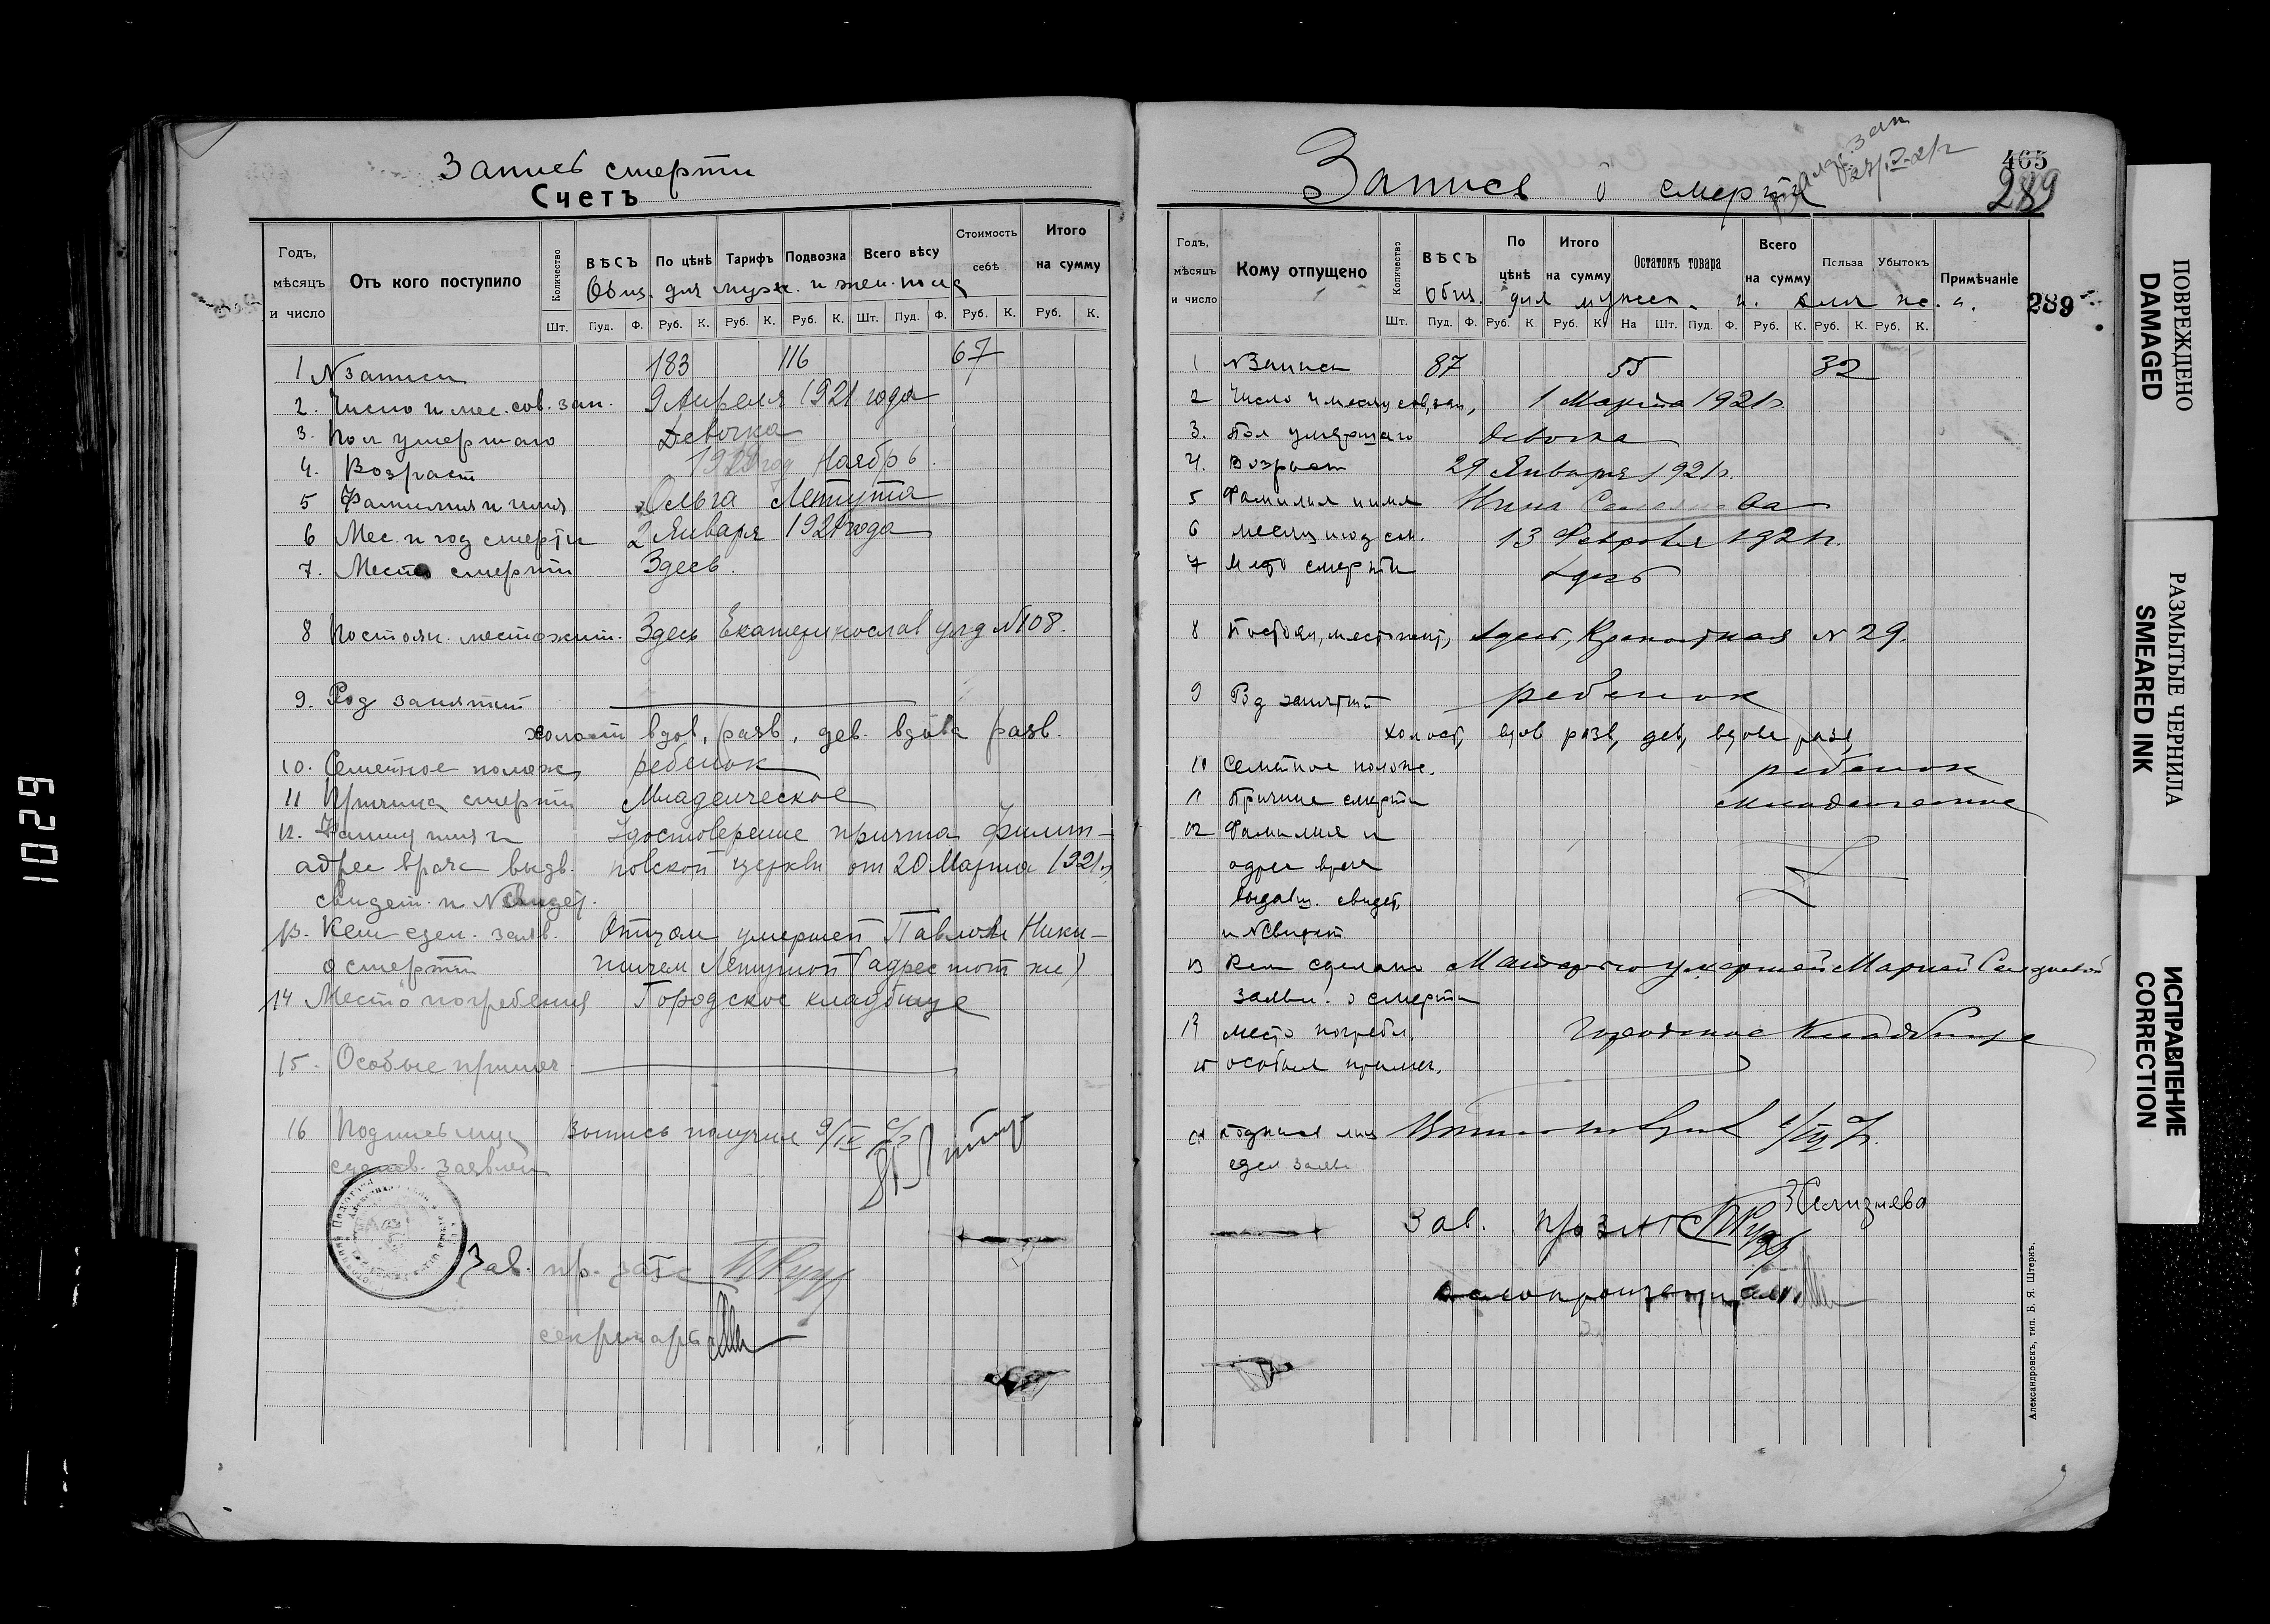 Запись смерти
Счетъ
Годъ, мѣсяцъ и число
Отъ кого поступило
Количество
ВѢСЪ
По цѣнѣ
Тарифъ
Подвозка
Всего вѣсу
Стоимость себѣ
Итого на сумму
Общ. для муж. и жен. пола
Шт. Пуд. Ф. Руб. К. Руб. К. Руб. К. Шт. Пуд. Ф. Руб. К. Руб. К.
1 № записи 183 116 67
2. Число и мес. сов. зап. 9 Апреля 1921 года
3. Пол умершаго Девочка
4. Возраст год Ноябрь.
5 Фамилия и имя Ольга Летута
6 Мес. и год смерти 2 Января 1921 года
7. Место смерти Здесь.
8 Постоян. местожит. Здесь Екатеринослав ул д №108.
9. Род занятий
холост вдов, разв, дев. вдова разв.
10. Семейное полож. ребенок
11 Причина смерти Младенческое
12. имя и Удостоверение причта Филип-
адрес врача выдв. повской церкви от 20 Марта 1921 г.
свидет. и № свидет.
13. Кем сдел. заяв. Отцом умершей Павлом Ники-
о смерти тичем Летутой (адрес тот же)
14 Место погребения Городское кладбище
15. Особые примеч.
16 Подпись лиц Запись получил 9/IV
сделав. заявлен
Зав. пр. загс
секретарь
Запись о смерти
465
289
Годъ, мѣсяцъ и число
Кому отпущено
Количество
ВѢСЪ
По цѣнѣ
Итого на сумму
Остатокъ товара
Всего на сумму
Польза
Убытокъ
Примѣчаніе
289
Общ. для мужск. и
Шт. Пуд. Ф. Руб. К Руб. К. На Шт. Пуд. Ф. Руб. К. Руб. К. Руб. К.
1 № Записи 87 55 32
2 Число и месяц сов, зап, 1 Марта 1921 г.
3. Пол умершаго девочка
4. Возраст 29 Января 1921 г.
5 Фамилия и имя Нина
6 месяц и год см. 13 Февраля 1921 г.
7 место смерти здесь
8 Постоян, местожит, здесь, Крепостная № 29.
9 Род занятий ребенок
холост, вдов разв, дев, вдова разв,
10 Семейное полож. ребенок
11 Причина смерти младенческое
12 Фамилия и
адрес врача
выдавш. свидет.
и № Свидет
13 Кем сделано Матерью умершей Марией
заявл. о смерти
место погребл. Городское Кладбище
15 особыя примеч.
подписи лиц
сдел заявл
Зав.
делопроизводитель
Александровскъ, тип. Б. Я. Штернъ.
1029
ПОВРЕЖДЕНО
DAMAGED
РАЗМЫТЫЕ ЧЕРНИЛА
SMEARED INK
ИСПРАВЛЕНИЕ
CORRECTION